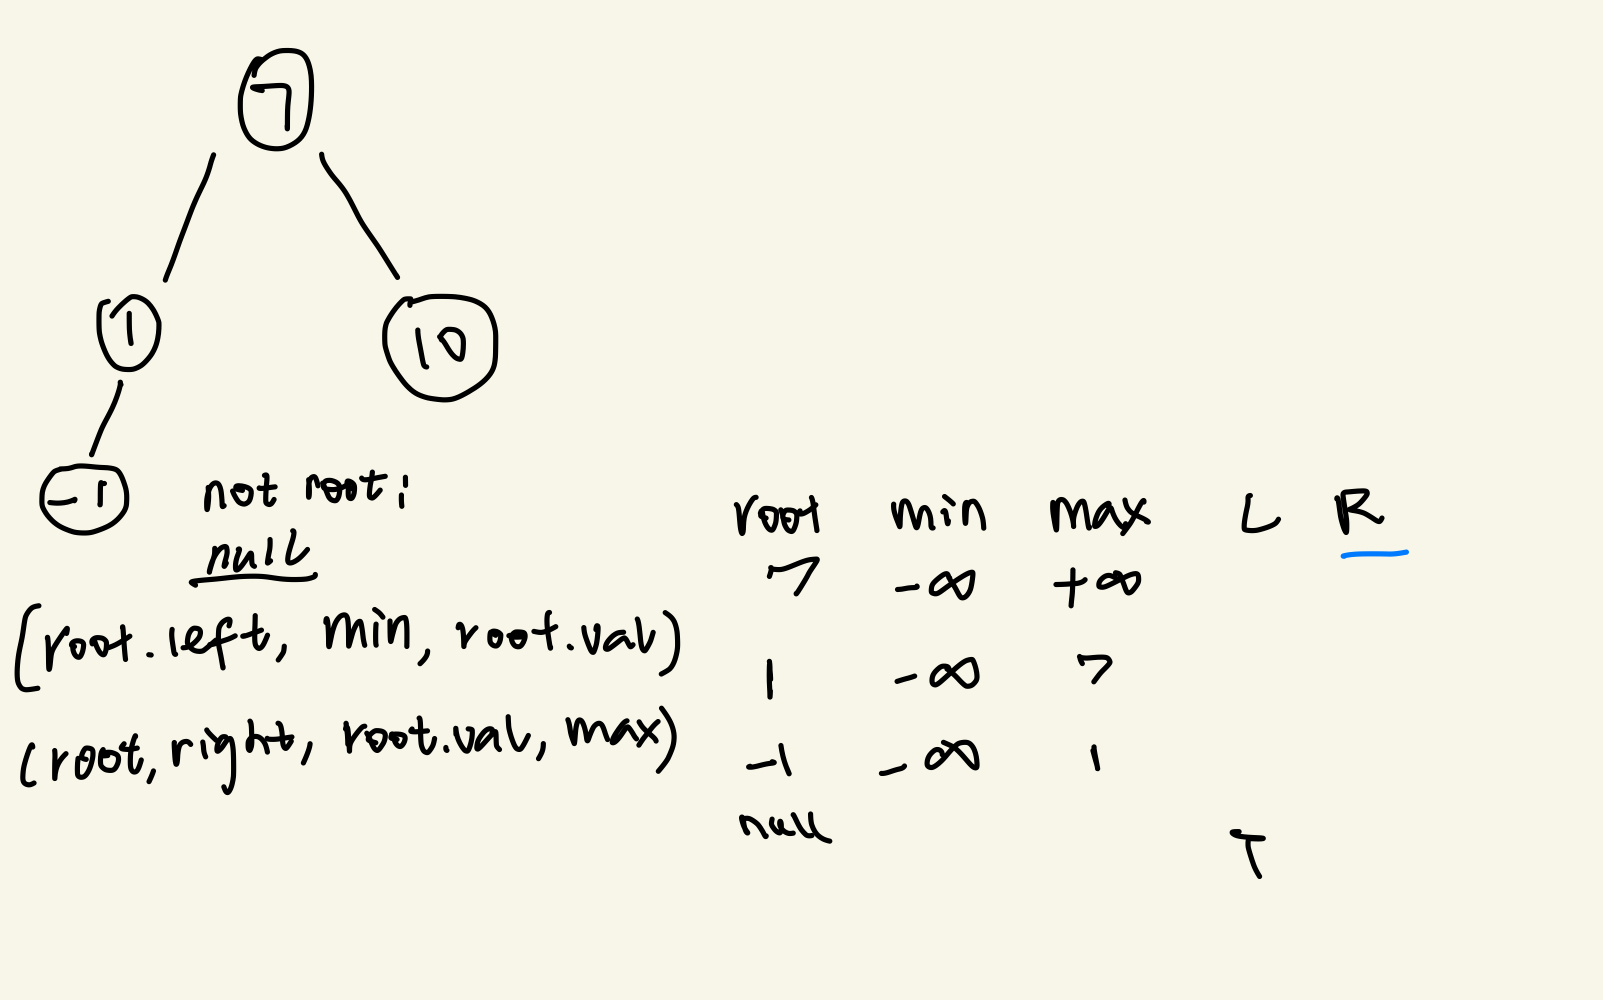 7
1
10
-1
not root:
null
(root.left, min, root.val)
(root, right, root.val, max)
root min max L R
7 -∞ +∞
1 -∞ 7
-1 -∞ 1
null
T